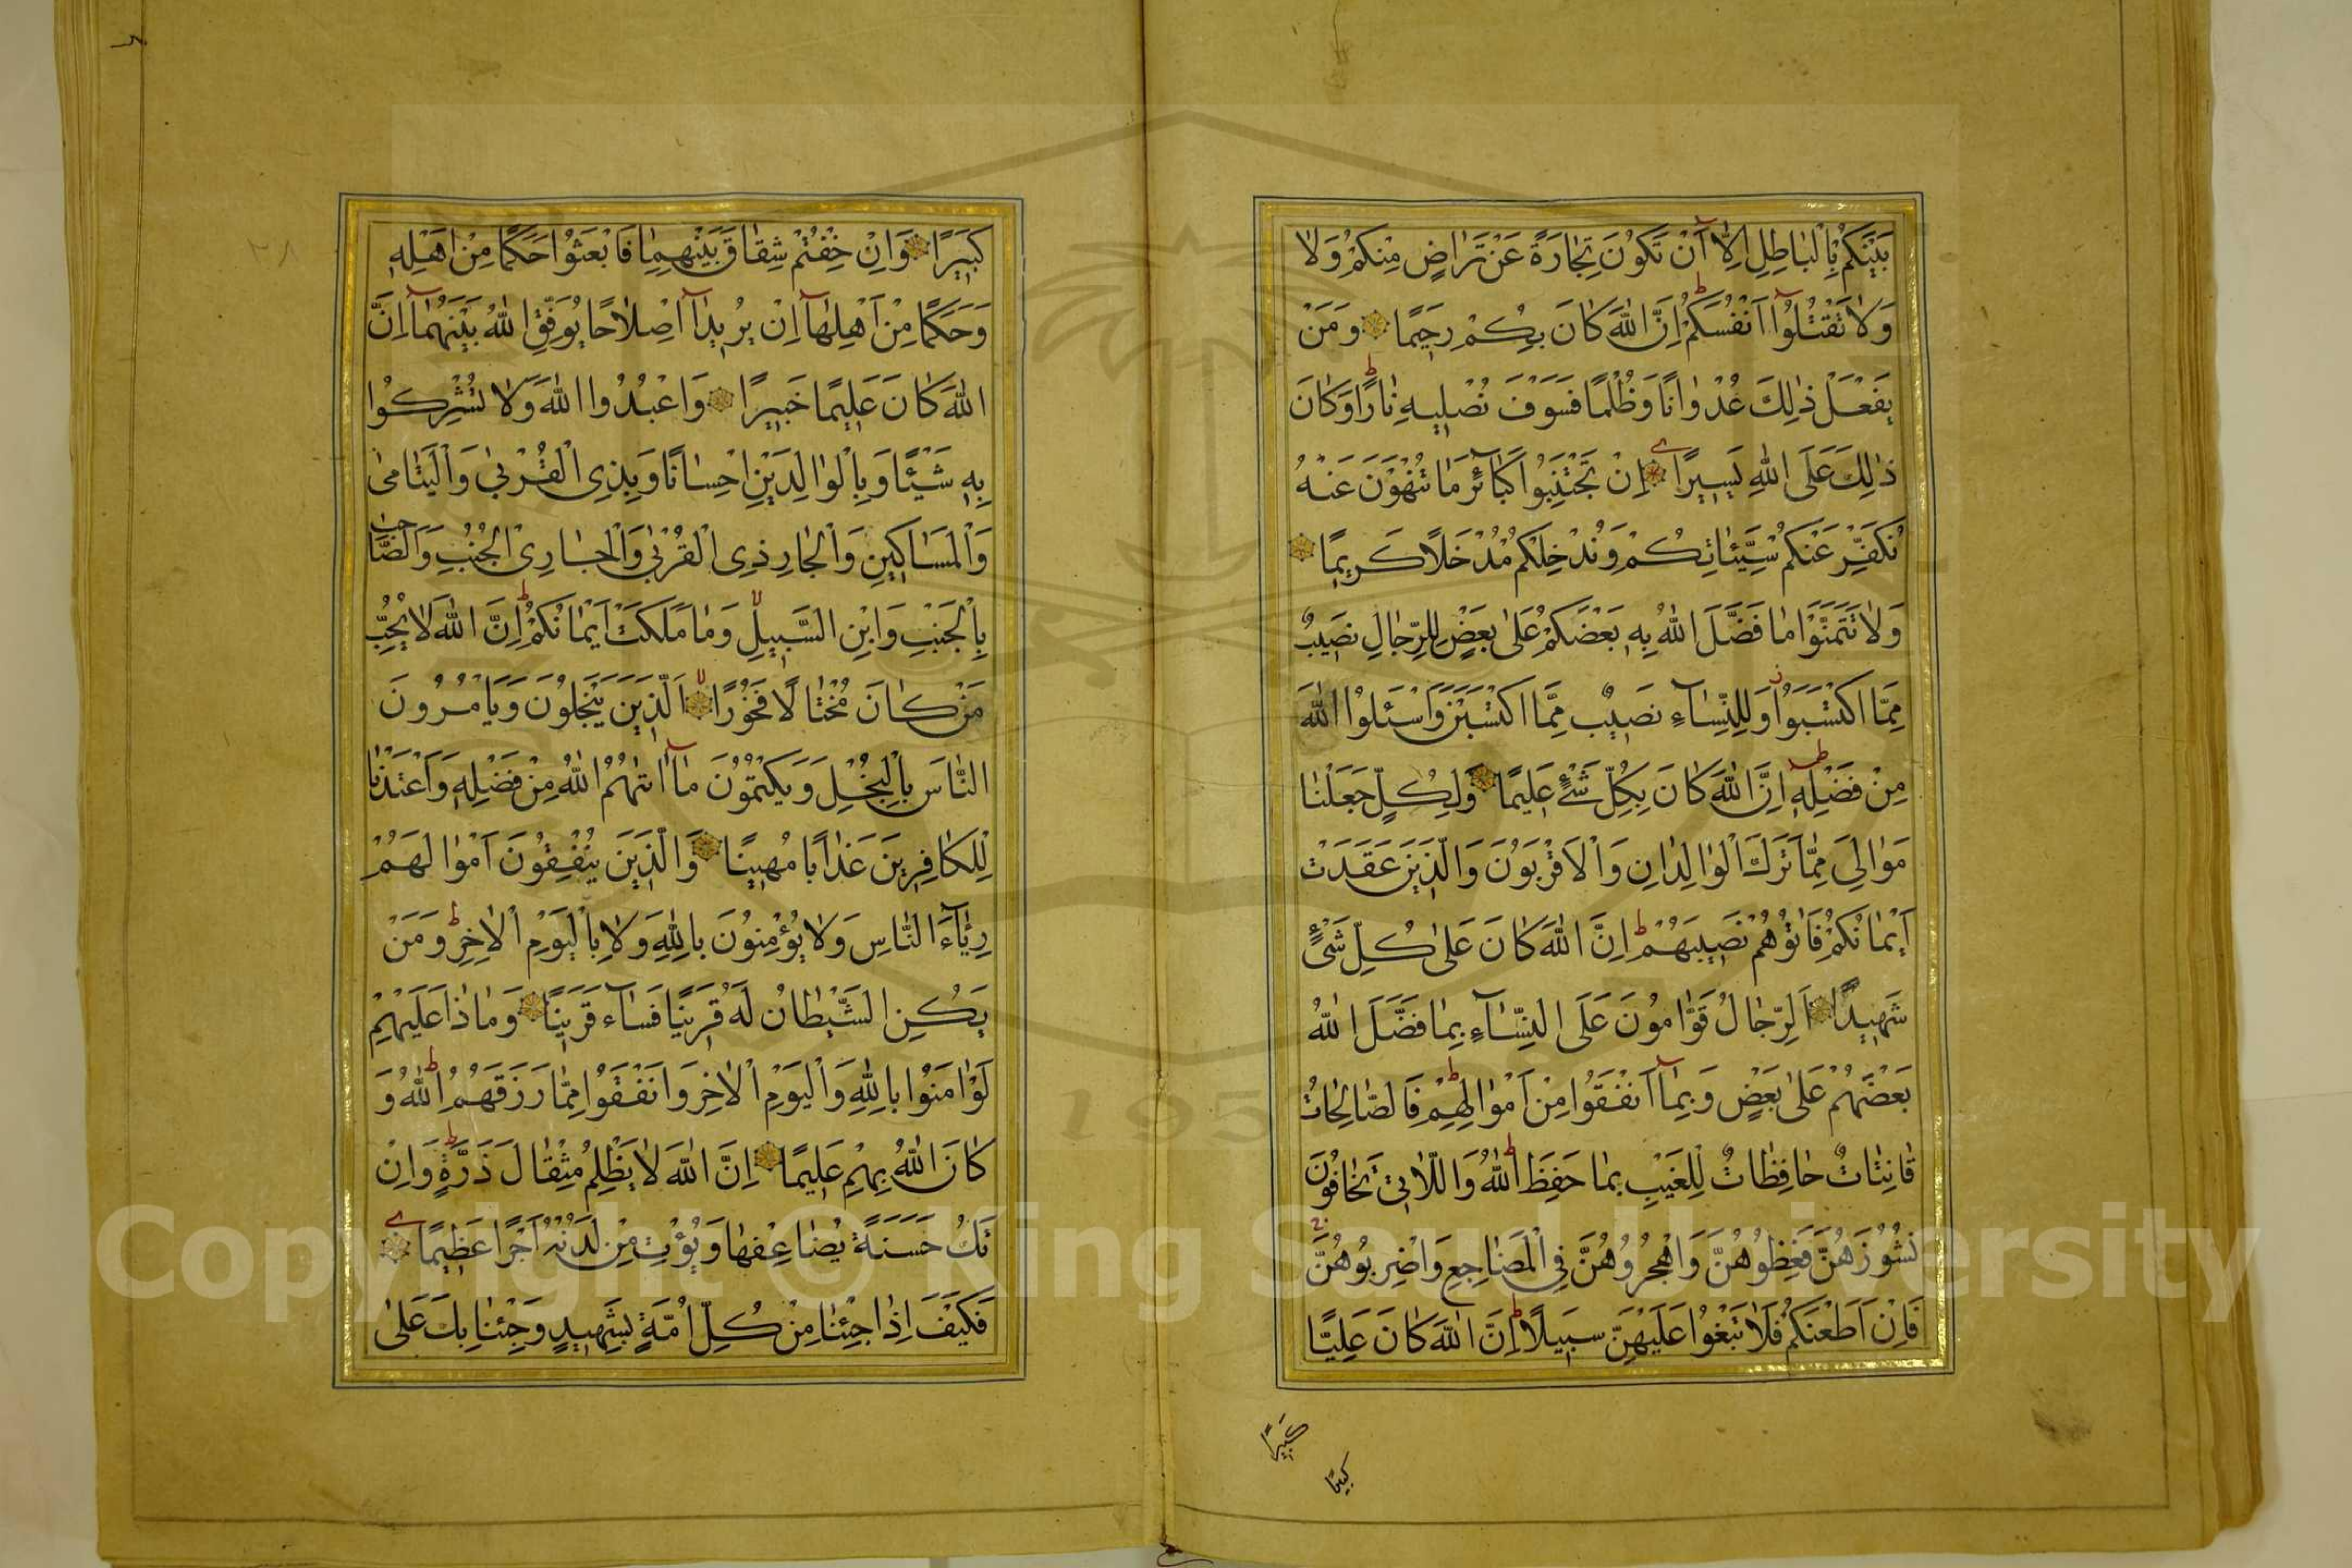 بَيْنَكُمْ بِالْبَاطِلِ اِلَّآ اَنْ تَكُوْنَ تِجَارَةً عَنْ تَرَاضٍ مِنْكُمْ وَلَا
وَلَا تَقْتُلُوٓا اَنْفُسَكُمْ اِنَّ اللّٰهَ كَانَ بِكُمْ رَحِيمًا وَمَنْ
يَفْعَلْ ذٰلِكَ عُدْوَانًا وَظُلْمًا فَسَوْفَ نُصْلِيهِ نَارًا وَكَانَ
ذٰلِكَ عَلَى اللّٰهِ يَسِيرًا اِنْ تَجْتَنِبُوا كَبَآئِرَ مَا تُنْهَوْنَ عَنْهُ
نُكَفِّرْ عَنْكُمْ سَيِّئَاتِكُمْ وَنُدْخِلْكُمْ مُدْخَلًا كَرِيمًا
وَلَا تَتَمَنَّوْا مَا فَضَّلَ اللّٰهُ بِهِ بَعْضَكُمْ عَلٰى بَعْضٍ لِلرِّجَالِ نَصِيبٌ
مِمَّا اكْتَسَبُوا وَلِلنِّسَآءِ نَصِيبٌ مِمَّا اكْتَسَبْنَ وَاسْئَلُوا اللّٰهَ
مِنْ فَضْلِهِ اِنَّ اللّٰهَ كَانَ بِكُلِّ شَيْءٍ عَلِيمًا وَلِكُلٍّ جَعَلْنَا
مَوَالِيَ مِمَّا تَرَكَ الْوَالِدَانِ وَالْاَقْرَبُوْنَ وَالَّذِينَ عَقَدَتْ
اَيْمَانُكُمْ فَاٰتُوهُمْ نَصِيبَهُمْ اِنَّ اللّٰهَ كَانَ عَلٰى كُلِّ شَيْءٍ
شَهِيدًا اَلرِّجَالُ قَوَّامُونَ عَلَى النِّسَآءِ بِمَا فَضَّلَ اللّٰهُ
بَعْضَهُمْ عَلٰى بَعْضٍ وَبِمَآ اَنْفَقُوا مِنْ اَمْوَالِهِمْ فَالصَّالِحَاتُ
قَانِتَاتٌ حَافِظَاتٌ لِلْغَيْبِ بِمَا حَفِظَ اللّٰهُ وَاللَّاتِي تَخَافُونَ
نُشُوزَهُنَّ فَعِظُوهُنَّ وَاهْجُرُوهُنَّ فِي الْمَضَاجِعِ وَاضْرِبُوهُنَّ
فَاِنْ اَطَعْنَكُمْ فَلَا تَبْغُوا عَلَيْهِنَّ سَبِيلًا اِنَّ اللّٰهَ كَانَ عَلِيًّا
كَبِيرًا
كَبِيرًا وَاِنْ خِفْتُمْ شِقَاقَ بَيْنِهِمَا فَابْعَثُوا حَكَمًا مِنْ اَهْلِهِ
وَحَكَمًا مِنْ اَهْلِهَآ اِنْ يُرِيدَآ اِصْلَاحًا يُوَفِّقِ اللّٰهُ بَيْنَهُمَآ اِنَّ
اللّٰهَ كَانَ عَلِيمًا خَبِيرًا وَاعْبُدُوا اللّٰهَ وَلَا تُشْرِكُوا
بِهِ شَيْئًا وَبِالْوَالِدَيْنِ اِحْسَانًا وَبِذِي الْقُرْبٰى وَالْيَتَامٰى
وَالْمَسَاكِينِ وَالْجَارِ ذِي الْقُرْبٰى وَالْجَارِ الْجُنُبِ وَالصَّاحِبِ
بِالْجَنْبِ وَابْنِ السَّبِيلِ وَمَا مَلَكَتْ اَيْمَانُكُمْ اِنَّ اللّٰهَ لَا يُحِبُّ
مَنْ كَانَ مُخْتَالًا فَخُورًا اَلَّذِينَ يَبْخَلُونَ وَيَأْمُرُونَ
النَّاسَ بِالْبُخْلِ وَيَكْتُمُونَ مَآ اٰتٰهُمُ اللّٰهُ مِنْ فَضْلِهِ وَاَعْتَدْنَا
لِلْكَافِرِينَ عَذَابًا مُهِينًا وَالَّذِينَ يُنْفِقُونَ اَمْوَالَهُمْ
رِئَآءَ النَّاسِ وَلَا يُؤْمِنُونَ بِاللّٰهِ وَلَا بِالْيَوْمِ الْاٰخِرِ وَمَنْ
يَكُنِ الشَّيْطَانُ لَهُ قَرِينًا فَسَآءَ قَرِينًا وَمَاذَا عَلَيْهِمْ
لَوْ اٰمَنُوا بِاللّٰهِ وَالْيَوْمِ الْاٰخِرِ وَاَنْفَقُوا مِمَّا رَزَقَهُمُ اللّٰهُ وَ
كَانَ اللّٰهُ بِهِمْ عَلِيمًا اِنَّ اللّٰهَ لَا يَظْلِمُ مِثْقَالَ ذَرَّةٍ وَاِنْ
تَكُ حَسَنَةً يُضَاعِفْهَا وَيُؤْتِ مِنْ لَدُنْهُ اَجْرًا عَظِيمًا
فَكَيْفَ اِذَا جِئْنَا مِنْ كُلِّ اُمَّةٍ بِشَهِيدٍ وَجِئْنَا بِكَ عَلٰى
٢٨
Copyright © King Saud University
195